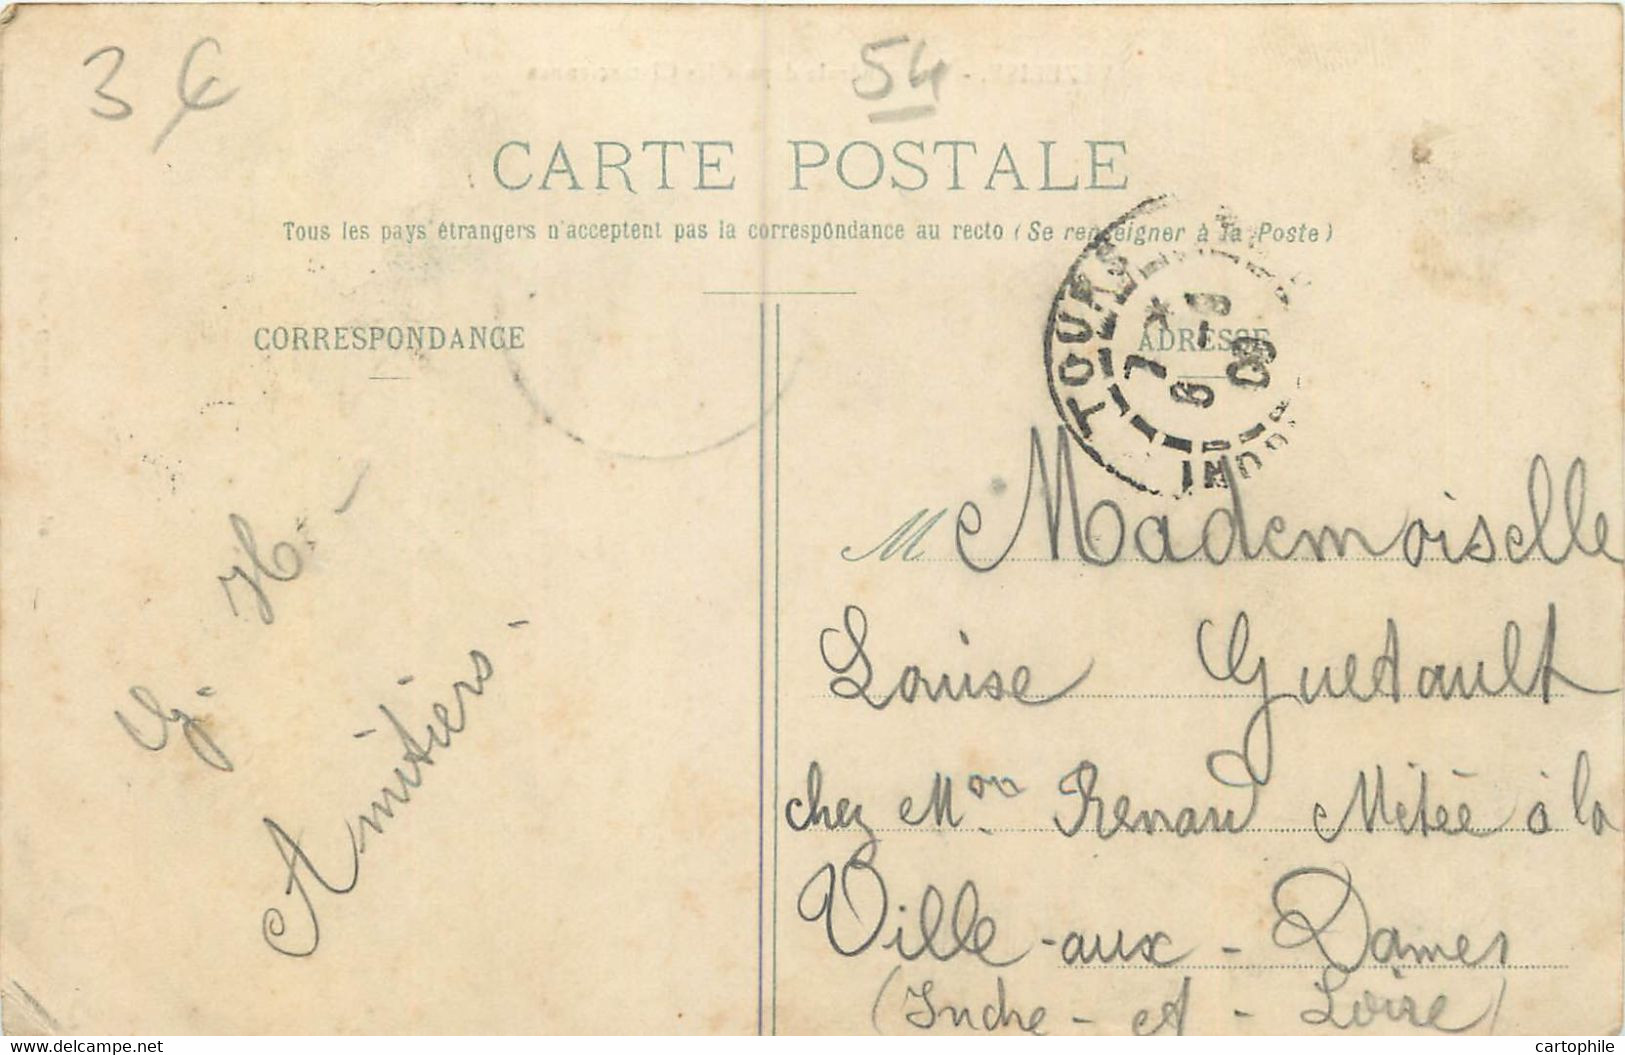 3 €
54
CARTE POSTALE
Tous les pays étrangers n'acceptent pas la correspondance au recto (Se renseigner à la Poste)
CORRESPONDANCE
ADRESSE
TOURS
7 * 
6 - 8
09
G. H. -
Amitiers -
M Mademoiselle
Louise Guetault
chez Mon Renard Métée à la
Ville-aux-Dames
(Indre-et-Loire)
www.delcampe.net
cartophile